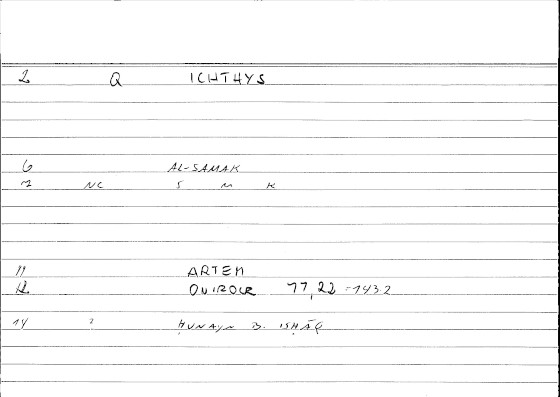 2 Q ICHTHYS
6 AL-SAMAK
7 NC S M K
11 ARTEM
12 ONIROCR 77,22 =143.2
14 ? ḤUNAYN B. ISḤĀQ